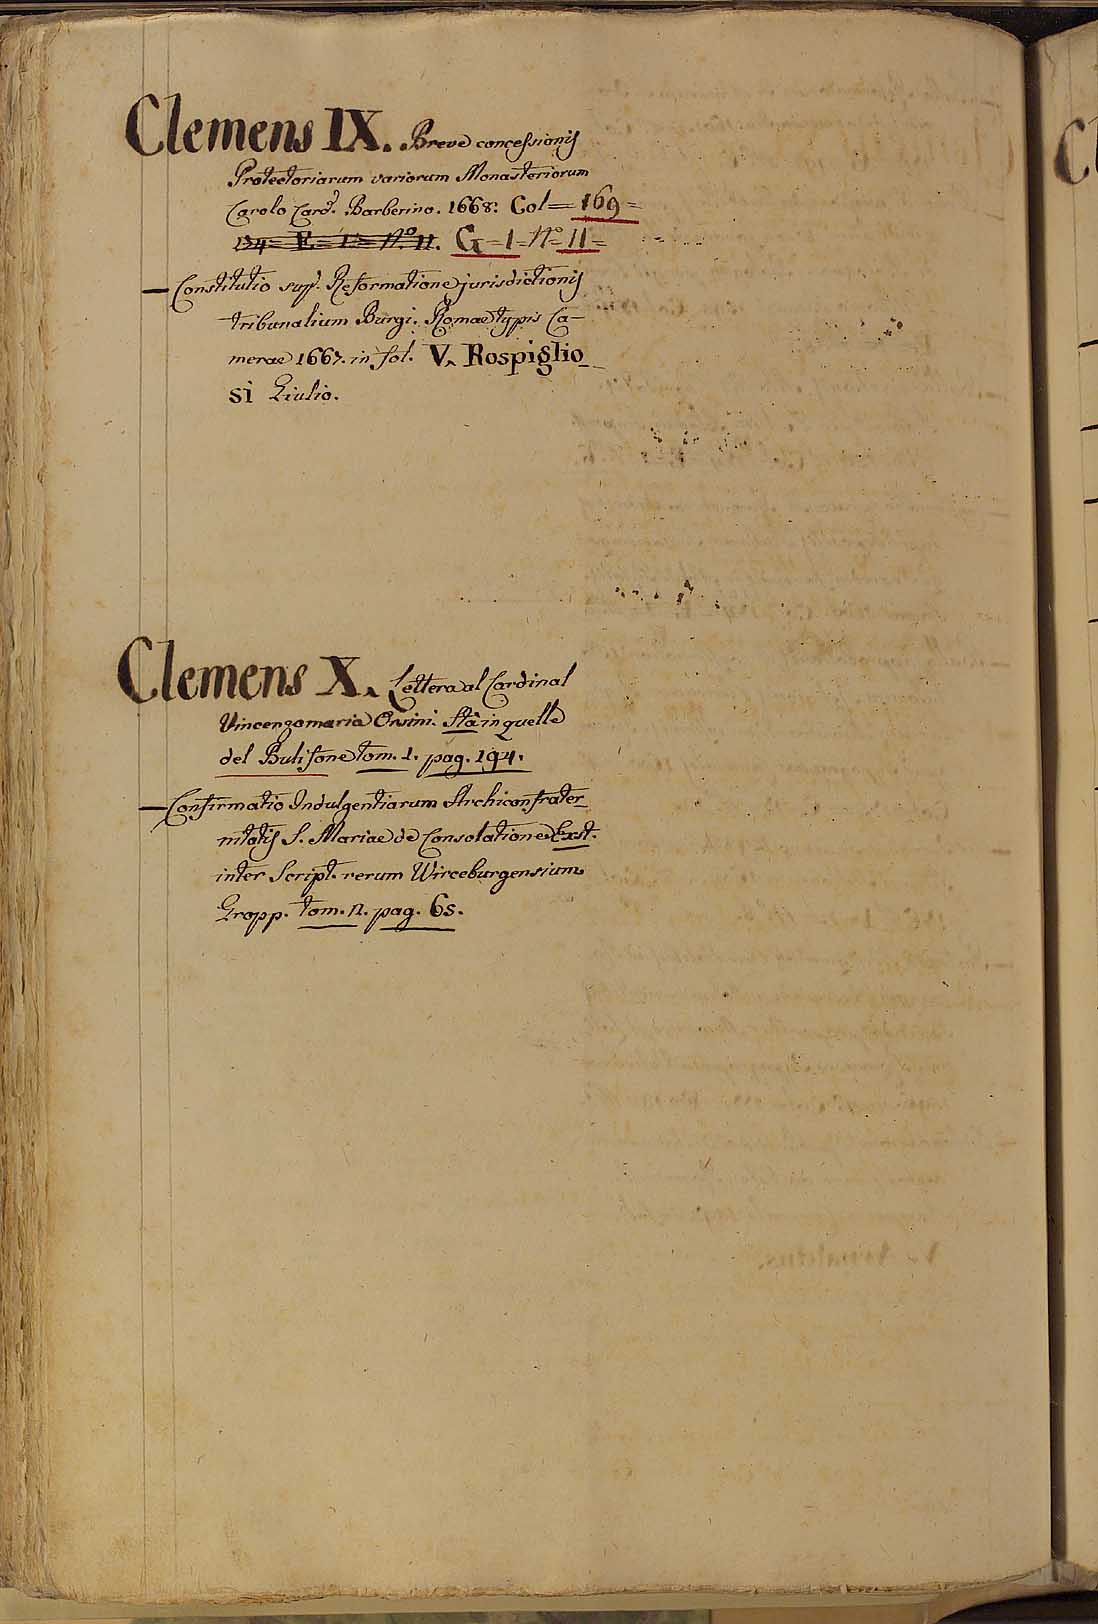 Clemens IX. Breve concessionis
Protectoriarum variorum Monasteriorum
Carolo Card. Barberino. 1668. Col= 169=
134= E= 1= N.º 11. G=1=N.º 11=
— Constitutio sup. Reformatione jurisdictionis
tribunalium Burgi. Romae typis Ca-
merae 1667. in fol. V. Rospiglio_
si Giulio.
Clemens X. Lettera al Cardinal
Vincenzomaria Orsini. Stà in quelle
del Bulifone tom. 1. pag. 194.
— Confirmatio Indulgentiarum Archiconfrater_
nitatis S. Mariae de Consolatione Exst.
inter Script. rerum Wirceburgensium
Gropp. tom. II. pag. 65.